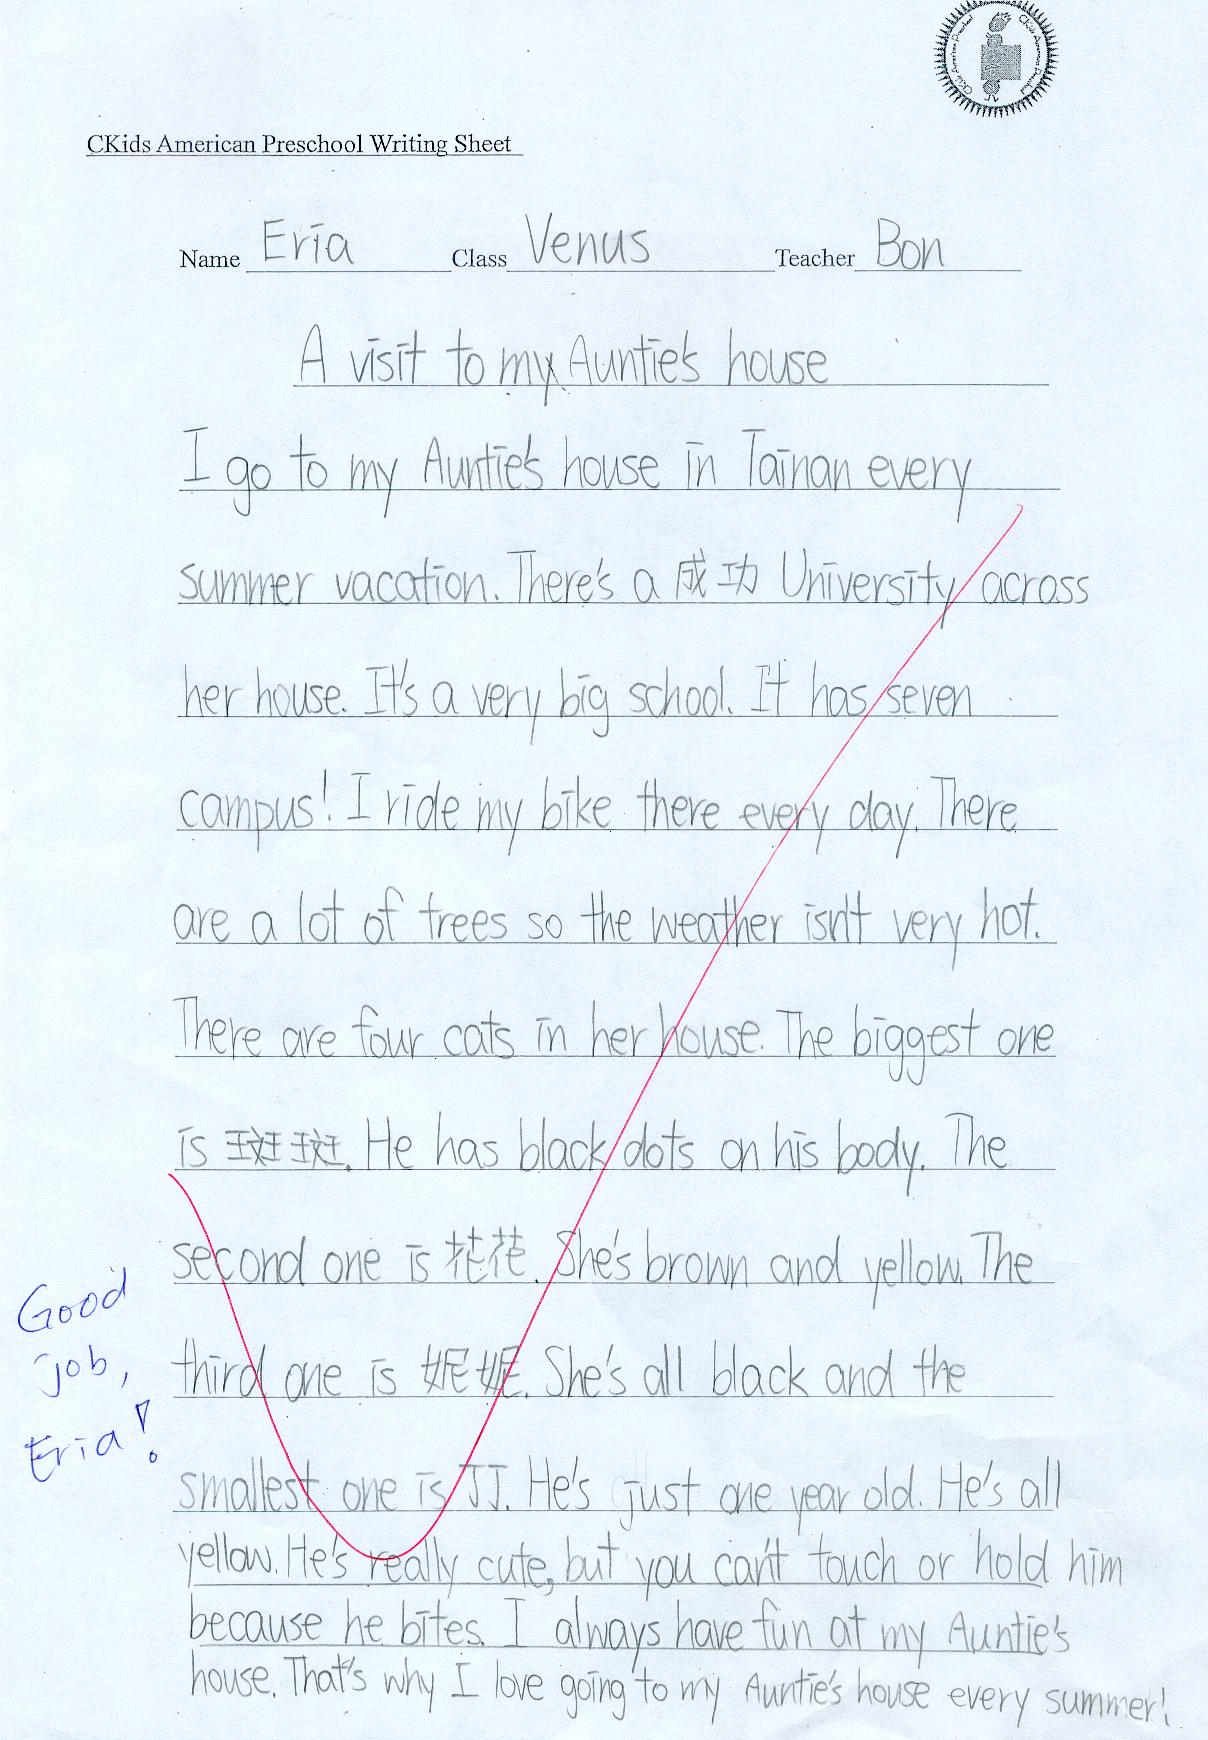 CKids American Preschool
CKids American Preschool Writing Sheet
Name Eria Class Venus Teacher Bon
A visit to my Auntie's house
I go to my Auntie's house in Tainan every
summer vacation. There's a 成功 University across
her house. It's a very big school. It has seven
campus! I ride my bike there every day. There
are a lot of trees so the weather isn't very hot.
There are four cats in her house. The biggest one
is 斑斑. He has black dots on his body. The
second one is 花花. She's brown and yellow. The
Good
job,
Eria!
third one is 妮妮. She's all black and the
smallest one is JJ. He's just one year old. He's all
yellow. He's really cute, but you can't touch or hold him
because he bites. I always have fun at my Auntie's
house. That's why I love going to my Auntie's house every summer!